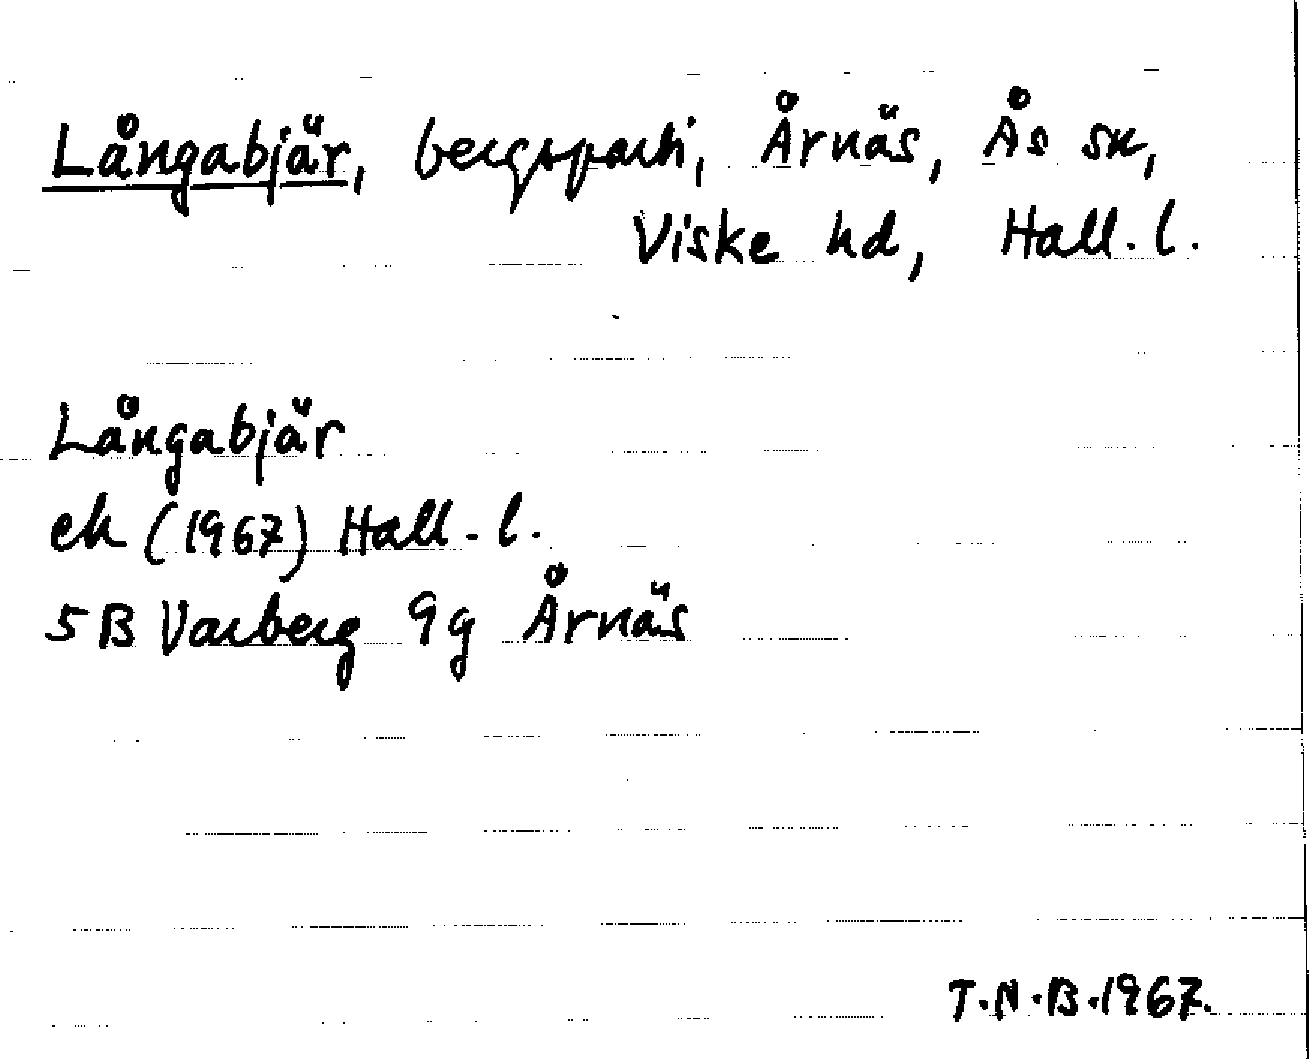 Långabjär, bergsparti, Årnäs, Ås sn,
Viske hd, Hall. l.
Långabjär
ek (1967) Hall. l.
5B Varberg 9g Årnäs
T.N.B.1967.